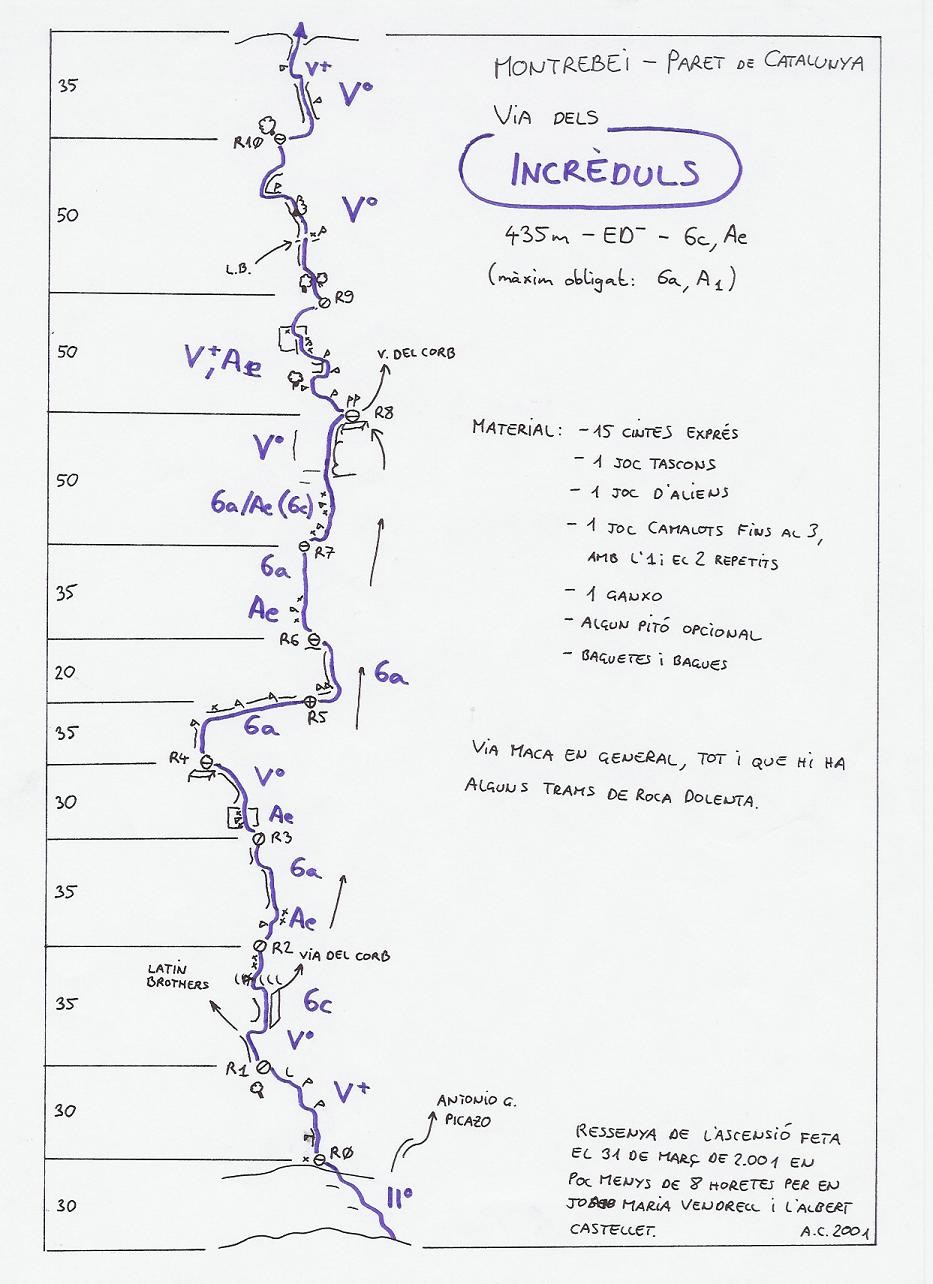 MONTREBEI - PARET DE CATALUNYA
VIA DELS
INCRÈDULS
435m - ED⁻ - 6c, Ae
(màxim obligat: 6a, A1)
35
V+
V°
R10
50
V°
L.B.
R9
50
V+, Ae
V. DEL CORB
R8
MATERIAL: - 15 CINTES EXPRÉS
- 1 JOC TASCONS
- 1 JOC D'ALIENS
- 1 JOC CAMALOTS FINS AL 3,
AMB L'1 i EL 2 REPETITS
- 1 GANXO
- ALGUN PITÓ OPCIONAL
- BAGUETES i BAGUES
V°
50
6a/Ae (6c)
R7
6a
35
Ae
R6
20
6a
R5
6a
35
R4
VIA MACA EN GENERAL, TOT i QUE HI HA
ALGUNS TRAMS DE ROCA DOLENTA.
V°
30
Ae
R3
6a
35
Ae
R2
VIA DEL CORB
LATIN
BROTHERS
35
6c
V°
R1
V+
30
ANTONIO G.
PICAZO
R0
II°
30
RESSENYA DE L'ASCENSIÓ FETA
EL 31 DE MARÇ DE 2.001 EN
POC MENYS DE 8 HORETES PER EN
MARIA VENDRELL i L'ALBERT
CASTELLET.
A.C. 2001